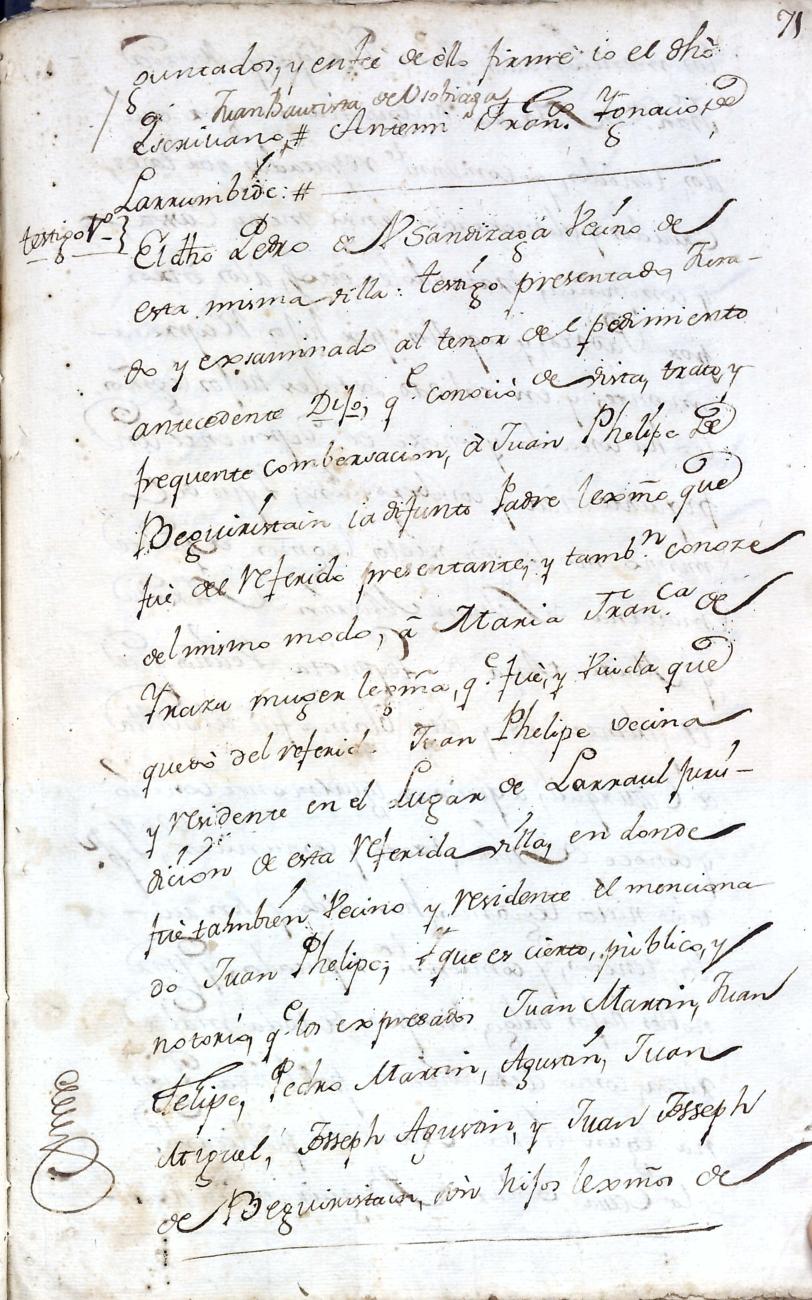 71
puntados, y enfeè de èllo firmè io el dhò
Juan Bautista de Usobiaga
Escrivano, # Antemi Fran.co Ygnacio de
Larrumbide: #
testigo 1º
El dho Pedro de Vecino de
esta misma villa: testigo presentado, Jura-
do y exsaminado al tenor del pedimiento
antecedente Dijo, q.e conoció de vista, trato, y
frequente combersacion, à Juan Phelipe de
Beguiristain ia difunto Padre lexmô, que
fuè del referido presentante, y tamb.n conoze
del mismo modo, à Maria Fran.ca de
Yrazu muger lexmâ, q.e fuè, y Viuda que
quedò del referid.o Juan Phelipe vecina
y residente en el Lugar de Larraul Juris-
dicion de esta referida villa, en donde
fue tambien Vecino y residente el menciona-
do Juan Phelipe; y que es cierto, pùblico, y
notorio, q.e los expresados Juan Martin, Juan
Felipe, Pedro Martin, Agustin, Juan
Miguel, Joseph Agustin, y Juan Joseph
de Beguiristain, son hijos lexmôs de